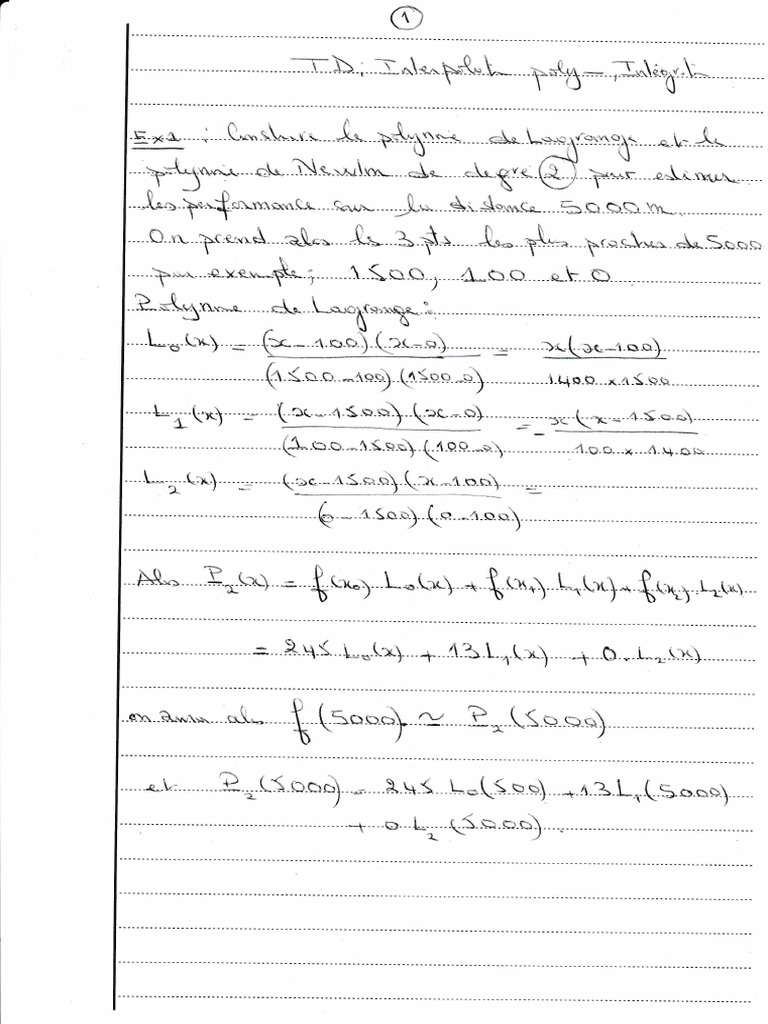 1
TD: Interpolati poly—, Intégrati
Ex1 : Construire le polynme de Lagrange et le
polynme de Newton de degre 2 pour estimer
les performance sur la distance 5000 m.
On prend alos ls 3 pts les plus proches de 5000
par exemple; 1500, 100 et 0
Polynme de Lagrange:
L₀(x) = (x-100)(x-0) / (1500-100)(1500-0) = x(x-100) / 1400 x 1500
L₁(x) = (x-1500)(x-0) / (100-1500)(100-0) = - x(x-1500) / 100 x 1400
L₂(x) = (x-1500)(x-100) / (0-1500)(0-100) =
Alos P₂(x) = f(x₀) L₀(x) + f(x₁) L₁(x) + f(x₂) L₂(x)
= 245 L₀(x) + 13 L₁(x) + 0. L₂(x)
on aura alos f(5000) ≃ P₂(5000)
et P₂(5000) = 245 L₀(500) + 13 L₁(5000)
+ 0 L₂(5000).